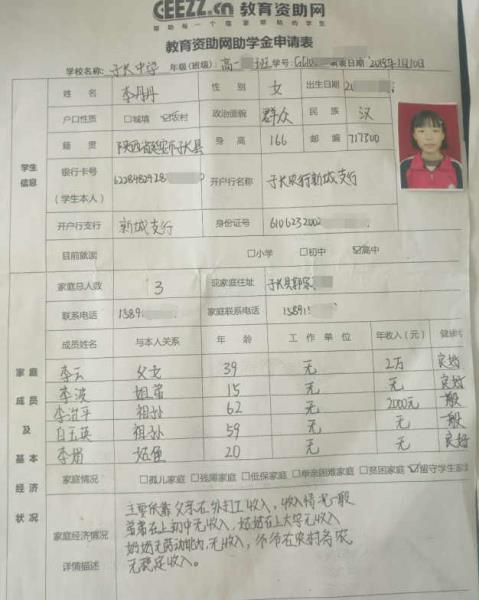 GEEZZ.cn 教育资助网
教育资助网助学金申请表
学校名称: 子长中学 年级(班级): 高一 班 学号: 填表日期
姓名 李丹丹 性别 女 出生日期 20
户口性质 □城镇 ☑农村 政治面貌 群众 民族 汉
籍贯 陕西省延安市子长县 身高 166 邮编 717300
学生信息
银行卡号 (学生本人) 6228482928 开户行名称 子长农行新城支行
开户行支行 新城支行 身份证号 6106232002
目前就读 □小学 □初中 ☑高中
家庭总人数 3 现家庭住址 子长县郭家
联系电话 1389 家庭联系电话 1389
成员姓名 与本人关系 年龄 工作单位 年收入(元) 健康
家庭成员及基本经济状况
李云 父女 39 无 2万 良好
李波 姐弟 15 无 无 良好
李治平 祖孙 62 无 2000元 一般
白玉英 祖孙 59 无 无 一般
李娟 20 无 无 良好
家庭情况 □孤儿家庭 □残障家庭 □低保家庭 □单亲困难家庭 □贫困家庭 ☑留守学生家
家庭经济情况详情描述
主要依靠父亲在外打工收入,收入情况一般
弟弟在上初中无收入,姑姑在上大学无收入
奶奶无劳动能力,无收入,爷爷在农村务农
无稳定收入。